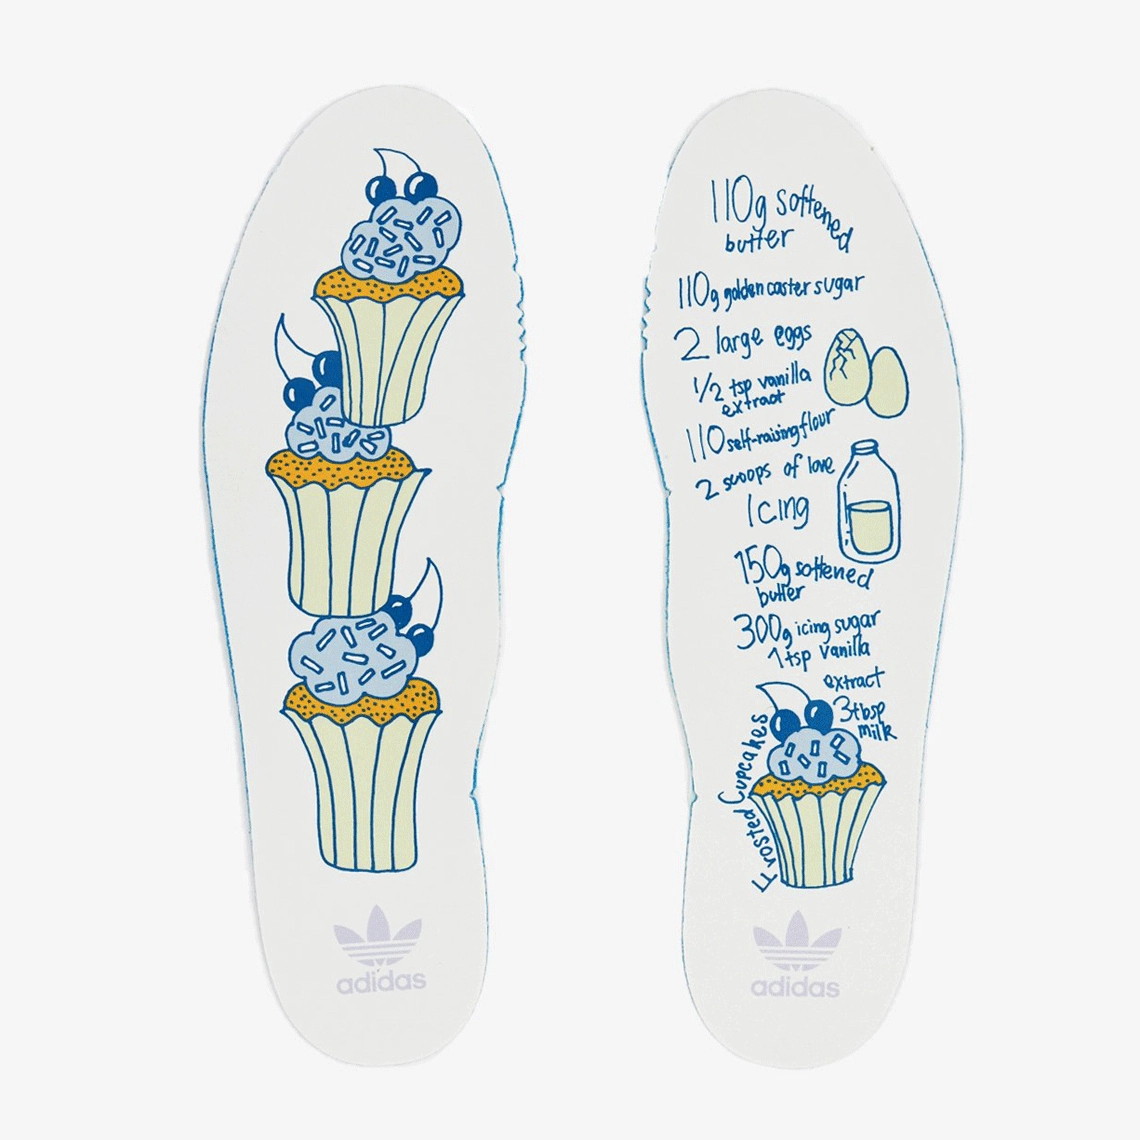 110g softened
butter
110g golden caster sugar
2 large eggs
1/2 tsp vanilla
extract
110 self-raising flour
2 scoops of love
Icing
150g softened
butter
300g icing sugar
1 tsp vanilla
extract
3 tbsp
milk
Frosted Cupcakes
adidas
adidas